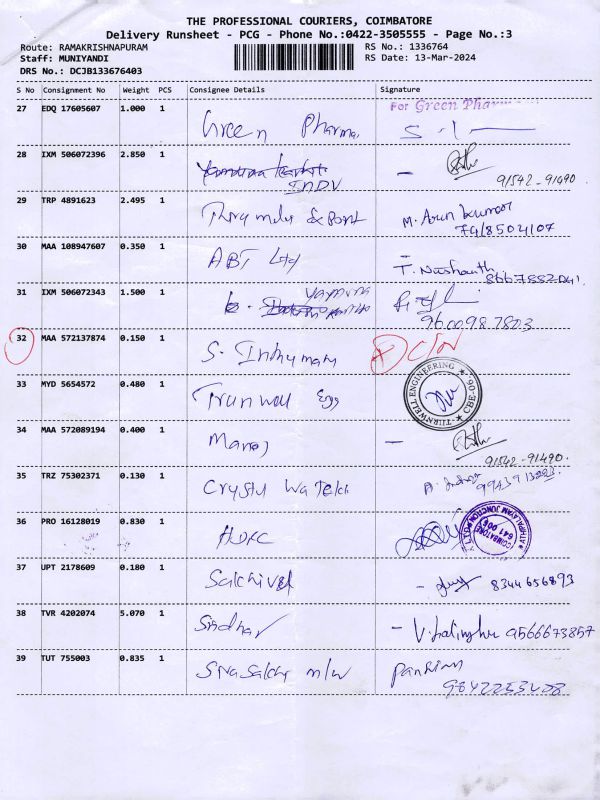 THE PROFESSIONAL COURIERS, COIMBATORE
Delivery Runsheet - PCG - Phone No.:0422-3505555 - Page No.:3
Route: RAMAKRISHNAPURAM
RS No.: 1336764
Staff: MUNIYANDI
RS Date: 13-Mar-2024
DRS No.: DCJB133676403
S No Consignment No Weight PCS Consignee Details Signature
27 EDQ 17605607 1.000 1 Green Pharma, For Green Pharma
28 IXM 506072396 2.850 1 INDV 91542-91490
29 TRP 4891623 2.495 1 Export M. Arun Kumar
7418504107
30 MAA 108947607 0.350 1 ABT Ltd T. Nishanth
31 IXM 506072343 1.500 1 Yamuna
9600987803
32 MAA 572137874 0.150 1 S. Indhumany
33 MYD 5654572 0.480 1 Turnwell Engg TURNWELL ENGINEERING
34 MAA 572089194 0.400 1 Manoj
91542-91490.
35 TRZ 75302371 0.130 1 Crystal Watch
36 PRO 16128019 0.830 1 HDFC COIMBATORE 641 006
37 UPT 2178609 0.180 1 Sakthivel - 8344656893
38 TVR 4202074 5.070 1 Sridhar - 9566673857
39 TUT 755003 0.835 1 Sivasakthi m/w
9842253408